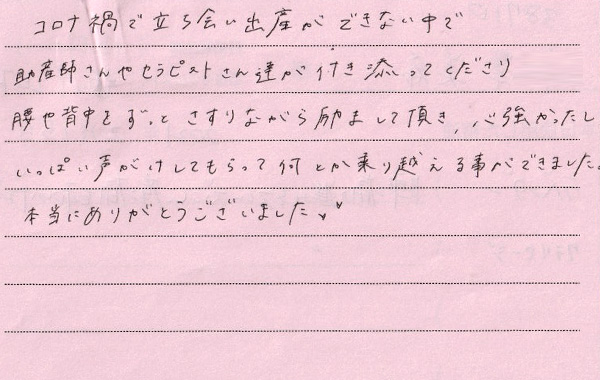 コロナ禍で立ち会い出産ができない中で
助産師さんやセラピストさん達が付き添ってくださり
腰や背中をずっとさすりながら励まして頂き、心強かったし
いっぱい声がけしてもらって何とか乗り越える事ができました。
本当にありがとうございました♥♥